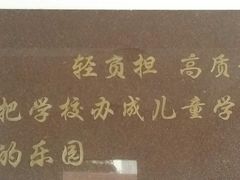 轻负担 高质
把学校办成儿童学
的乐园